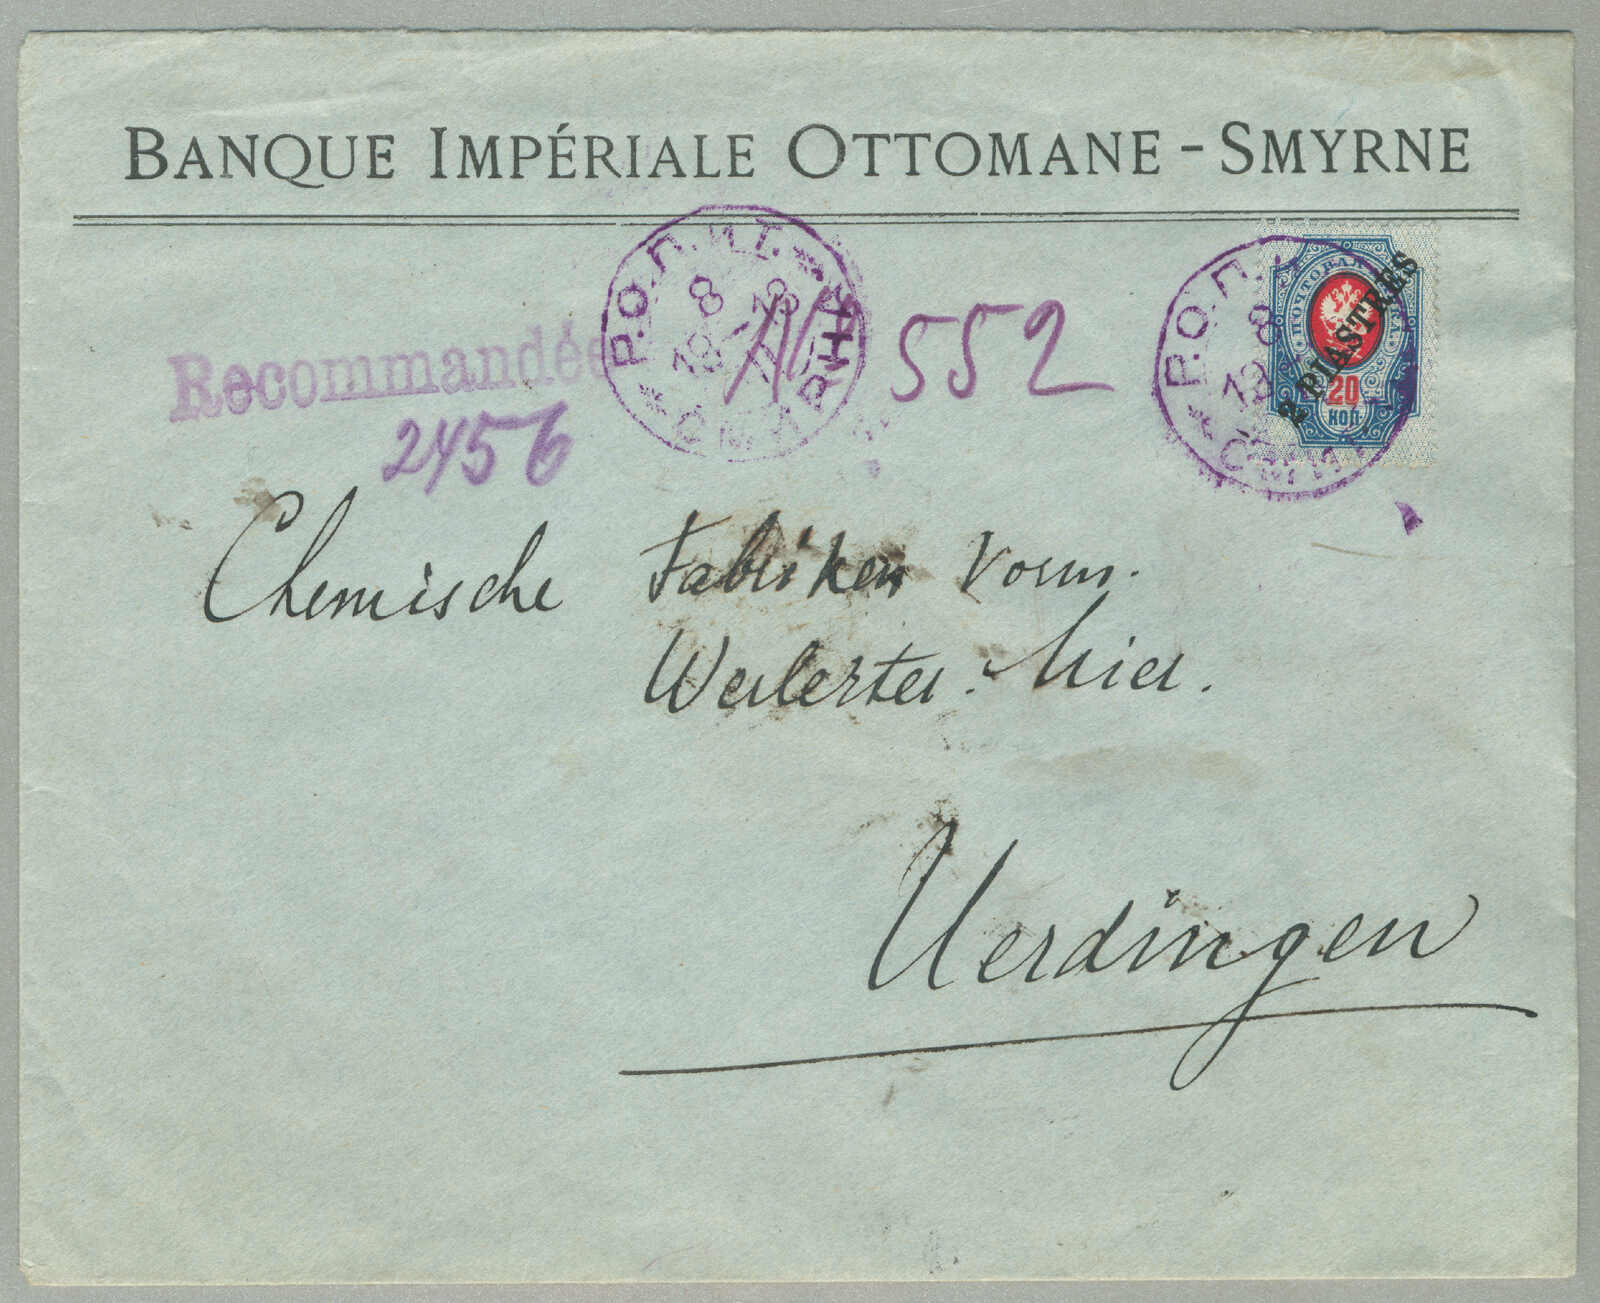 BANQUE IMPÉRIALE OTTOMANE - SMYRNE
Р.О.П. и Т. СМИРНА
8 13
19
Р.О.П.
8
19
ПОЧТОВАЯ МАРКА
2 PIASTRES
20
КОП
Recommandée
2456
N 552
Chemische Fabriken vorm.
Weilerter. Mier.
Uerdingen